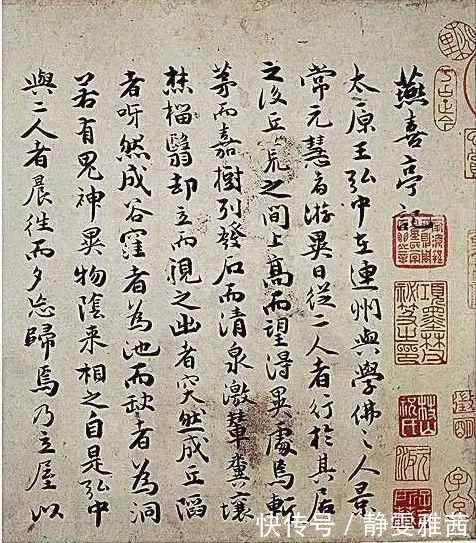 燕喜亭記
太原王弘中在連州與學佛人景
常元慧者游異日從二人者行於其居
之後丘荒之間上高而望得異處焉斬
茅而嘉樹列發石而清泉激輦糞壤
焚椔翳却立而視之出者突然成丘陷
者呀然成谷窪者為池而缺者為洞
若有鬼神異物陰来相之自是弘中
與二人者晨往而夕忘歸焉乃立屋以
項墨林祕笈之印
快传号 / 静雯雅茜